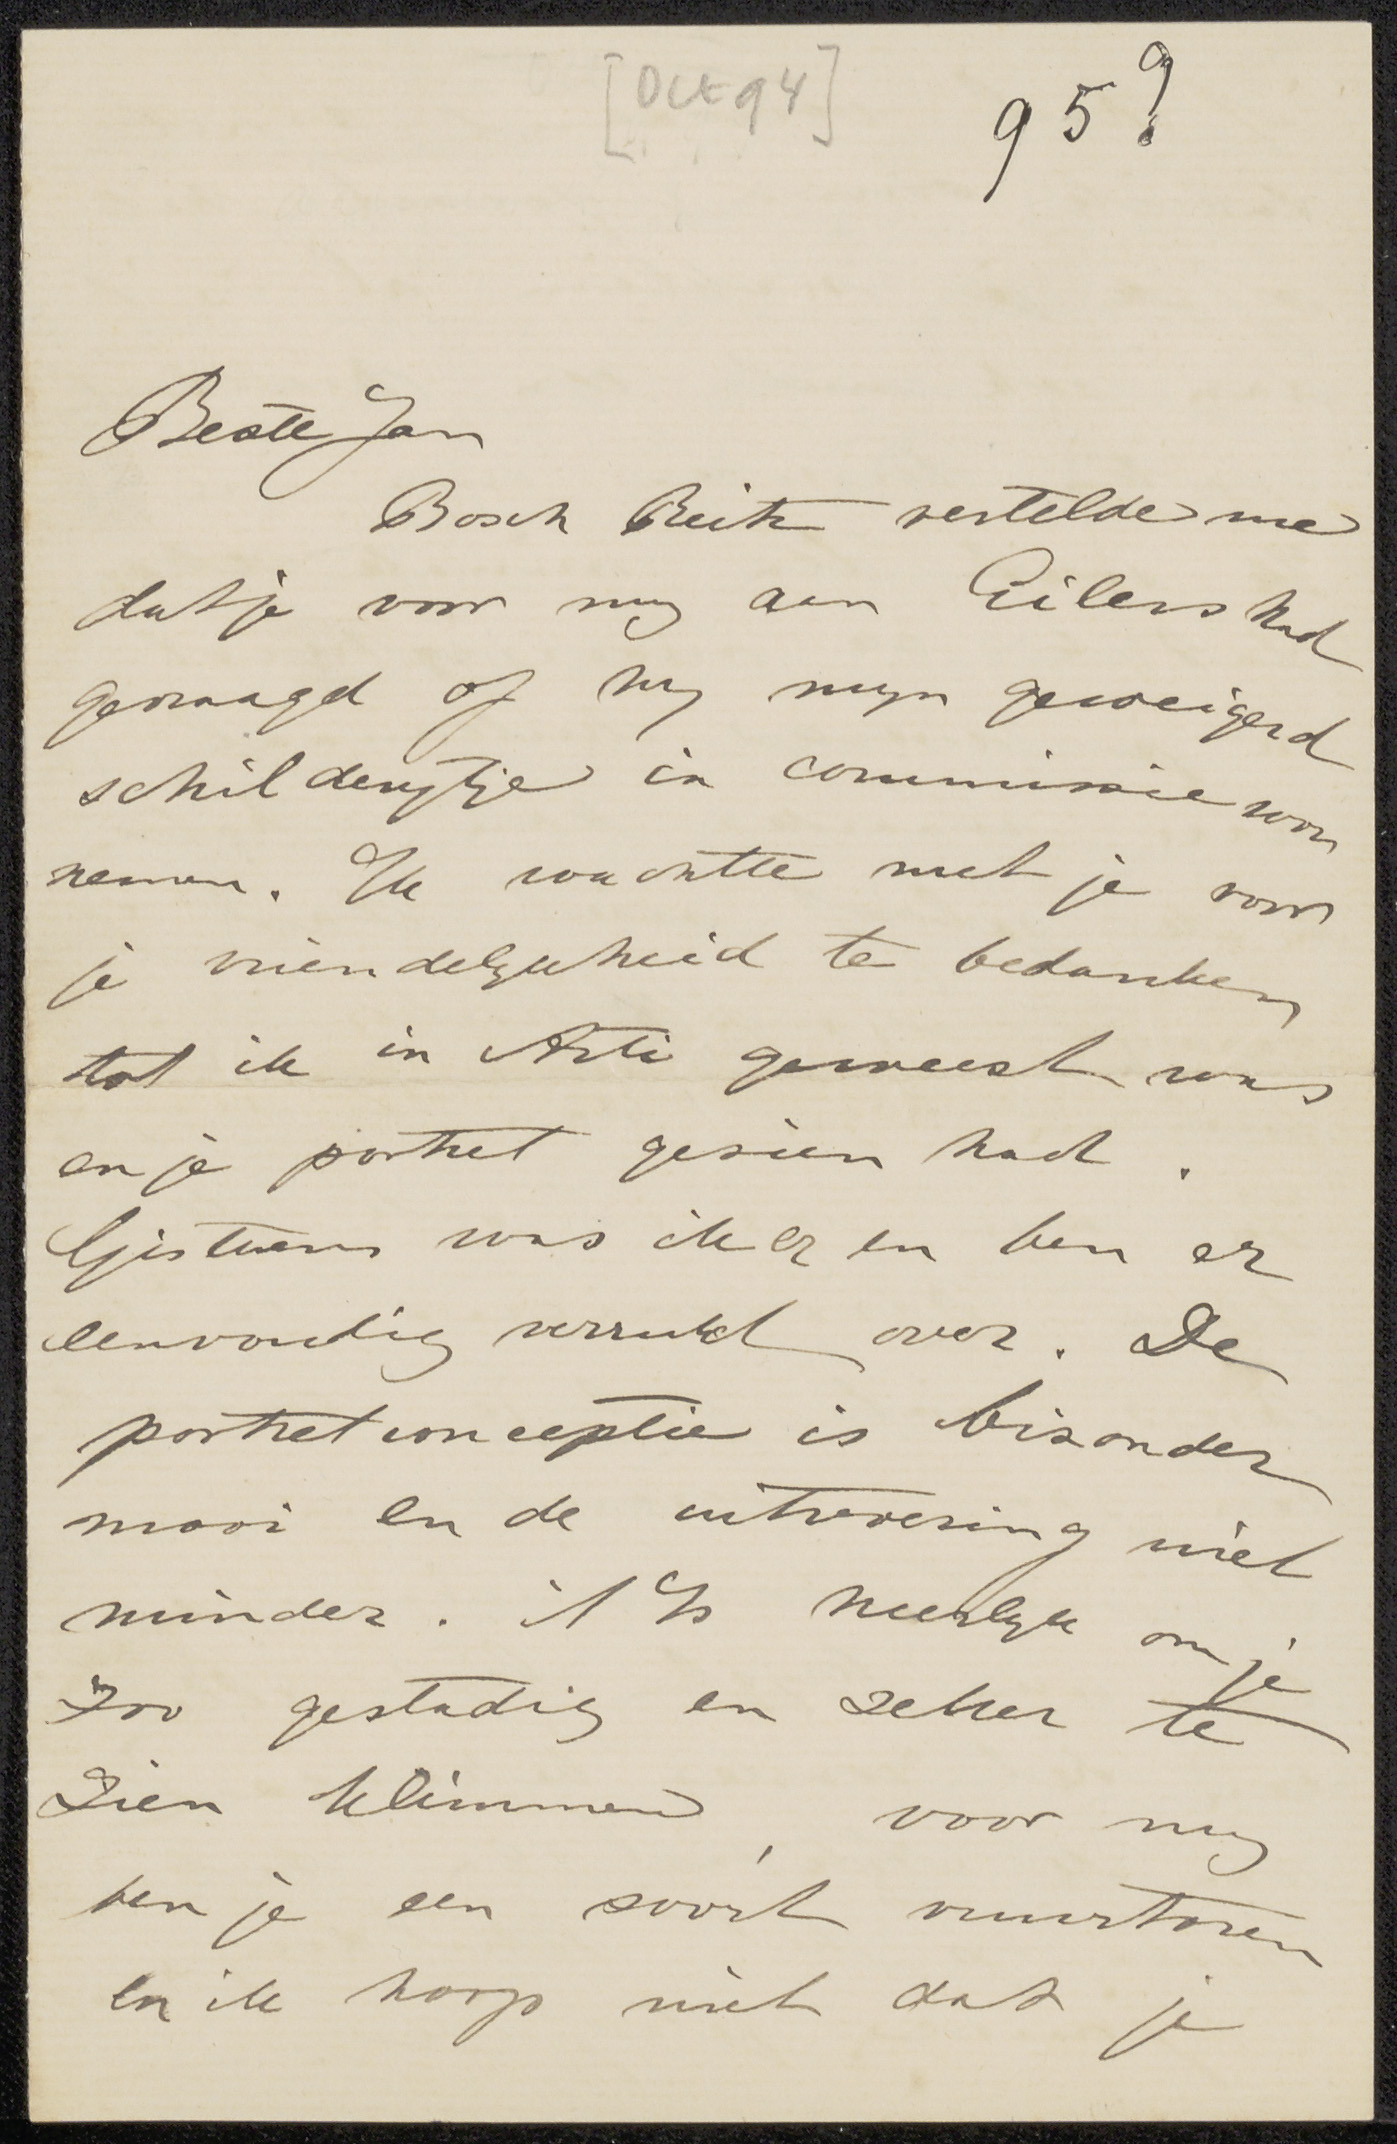 [Oct 94]
95?
Beste Jan
Bosch Reitz vertelde me
dat je voor mij aan Eilers had
gevraagd of hij mijn geweigerd
schilderijtje in commissie wou
nemen. Ik wachtte met je voor
je vriendelijkheid te bedanken
tot ik in Arti geweest was
en je portret gezien had.
Gisteren was ik er en ben er
eenvoudig verrukt over. De
portretconceptie is bizonder
mooi en de uitvoering niet
minder. 't Is heerlijk om je
zoo gestadig en zeker te
zien klimmen, voor mij
ben je een soort vuurtoren
en ik hoop niet dat je